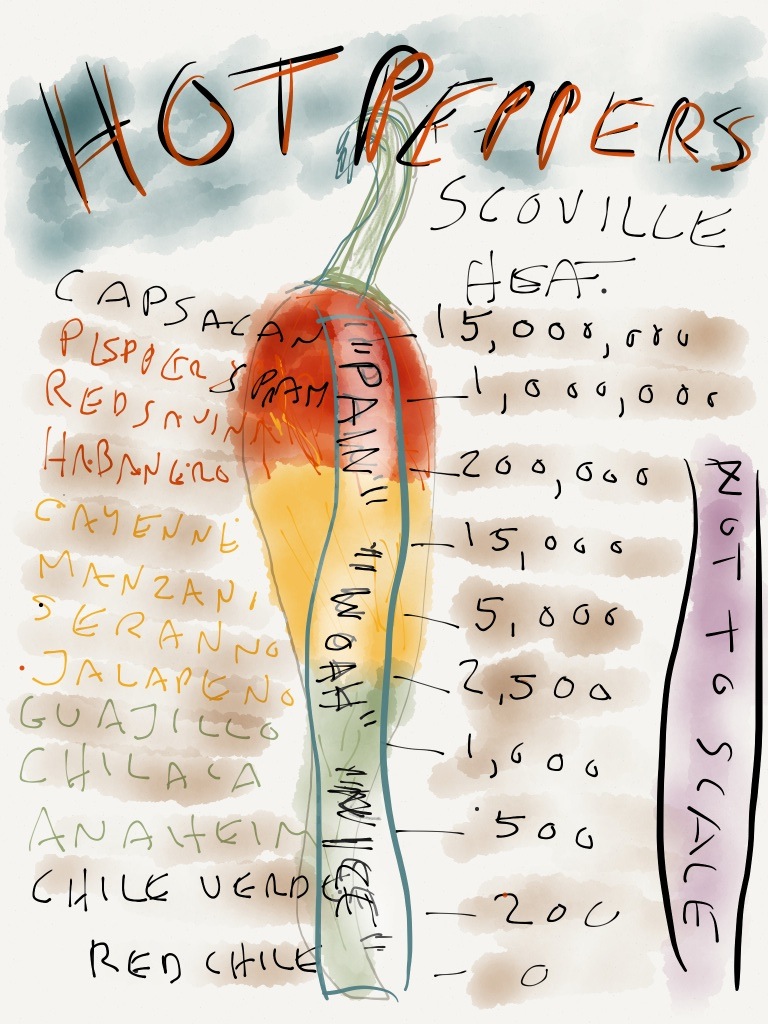 HOT PEPPERS
SCOVILLE
HEAT.
CAPSACAN
PEPPER SPRAY
RED SAVINA
HABANERO
CAYENNE
MANZANI
SERANNO
JALAPENO
GUAJILLO
CHILACA
ANAHEIM
CHILE VERDE
RED CHILE
"PAIN"
"WOAH"
"NICE"
15,000,000
1,000,000
200,000
15,000
5,000
2,500
1,000
500
200
0
NOT TO SCALE